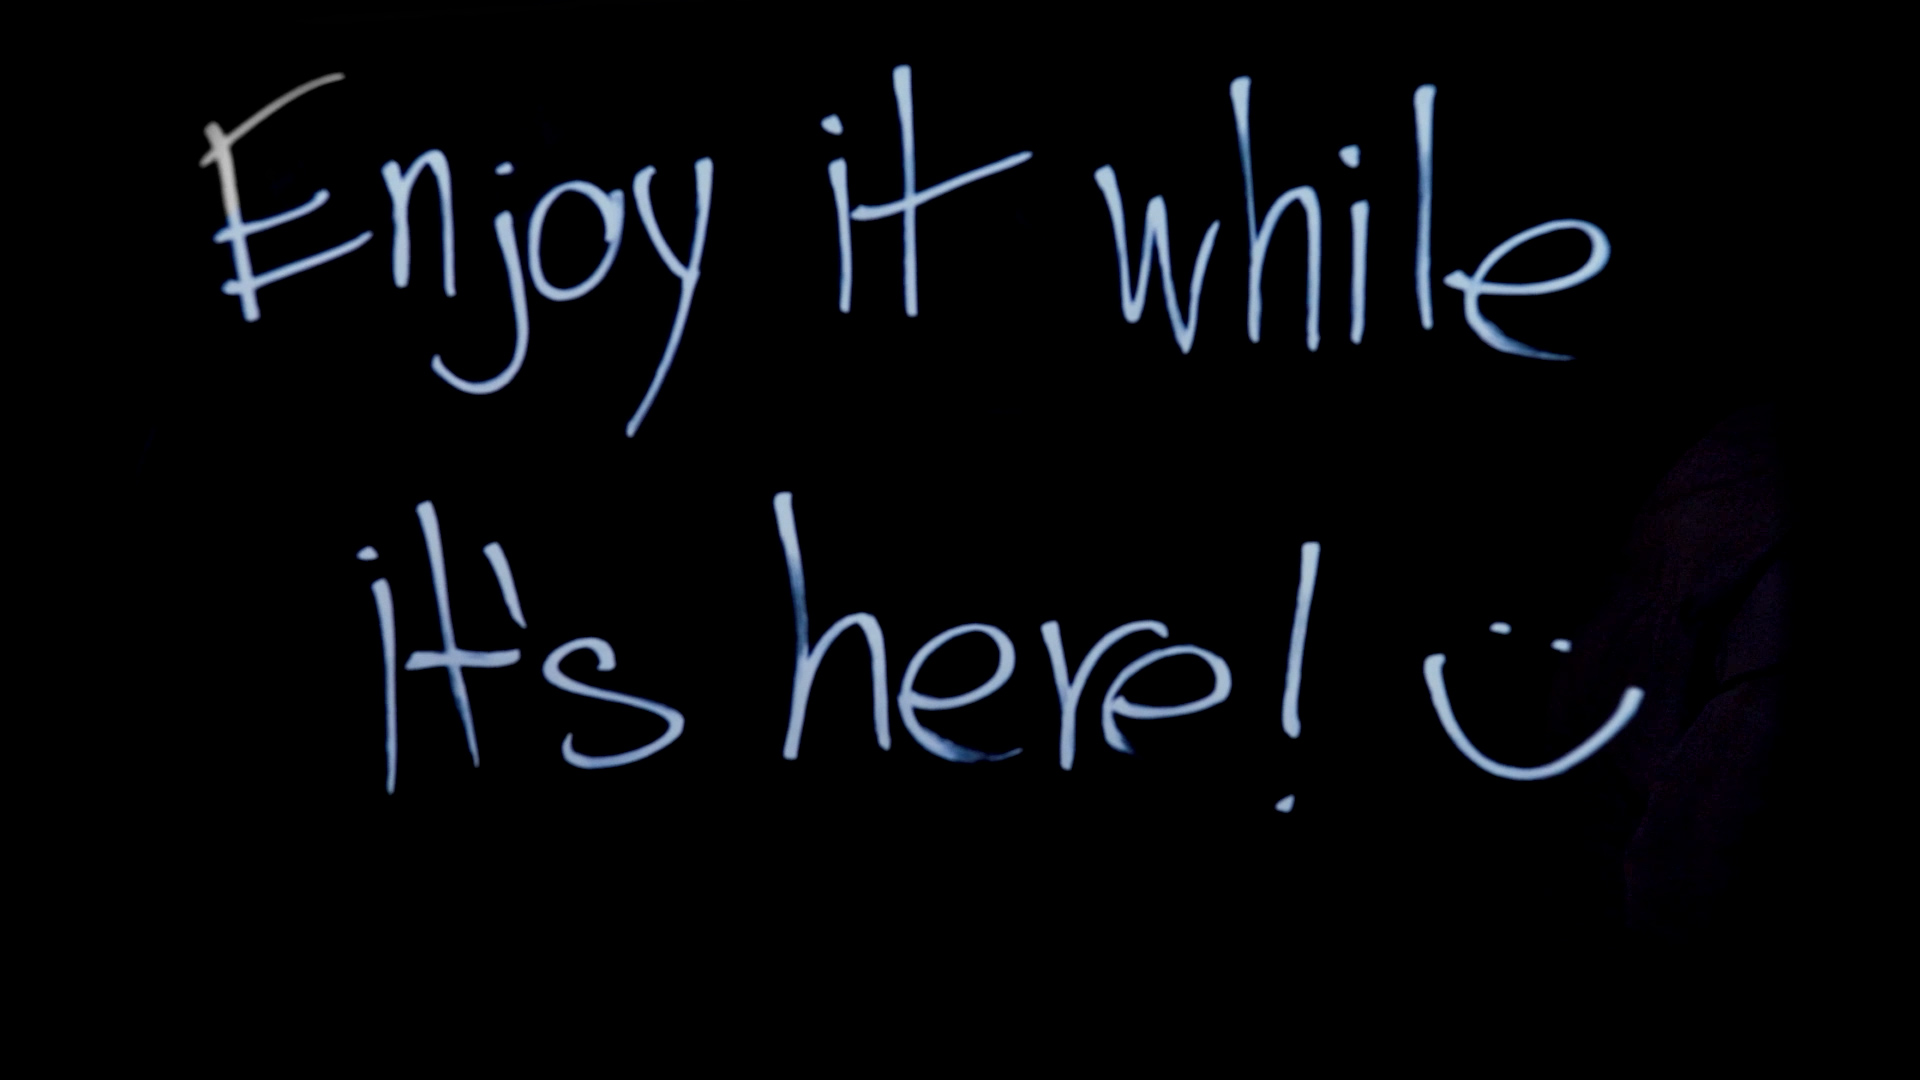 Enjoy it while
it's here! :)